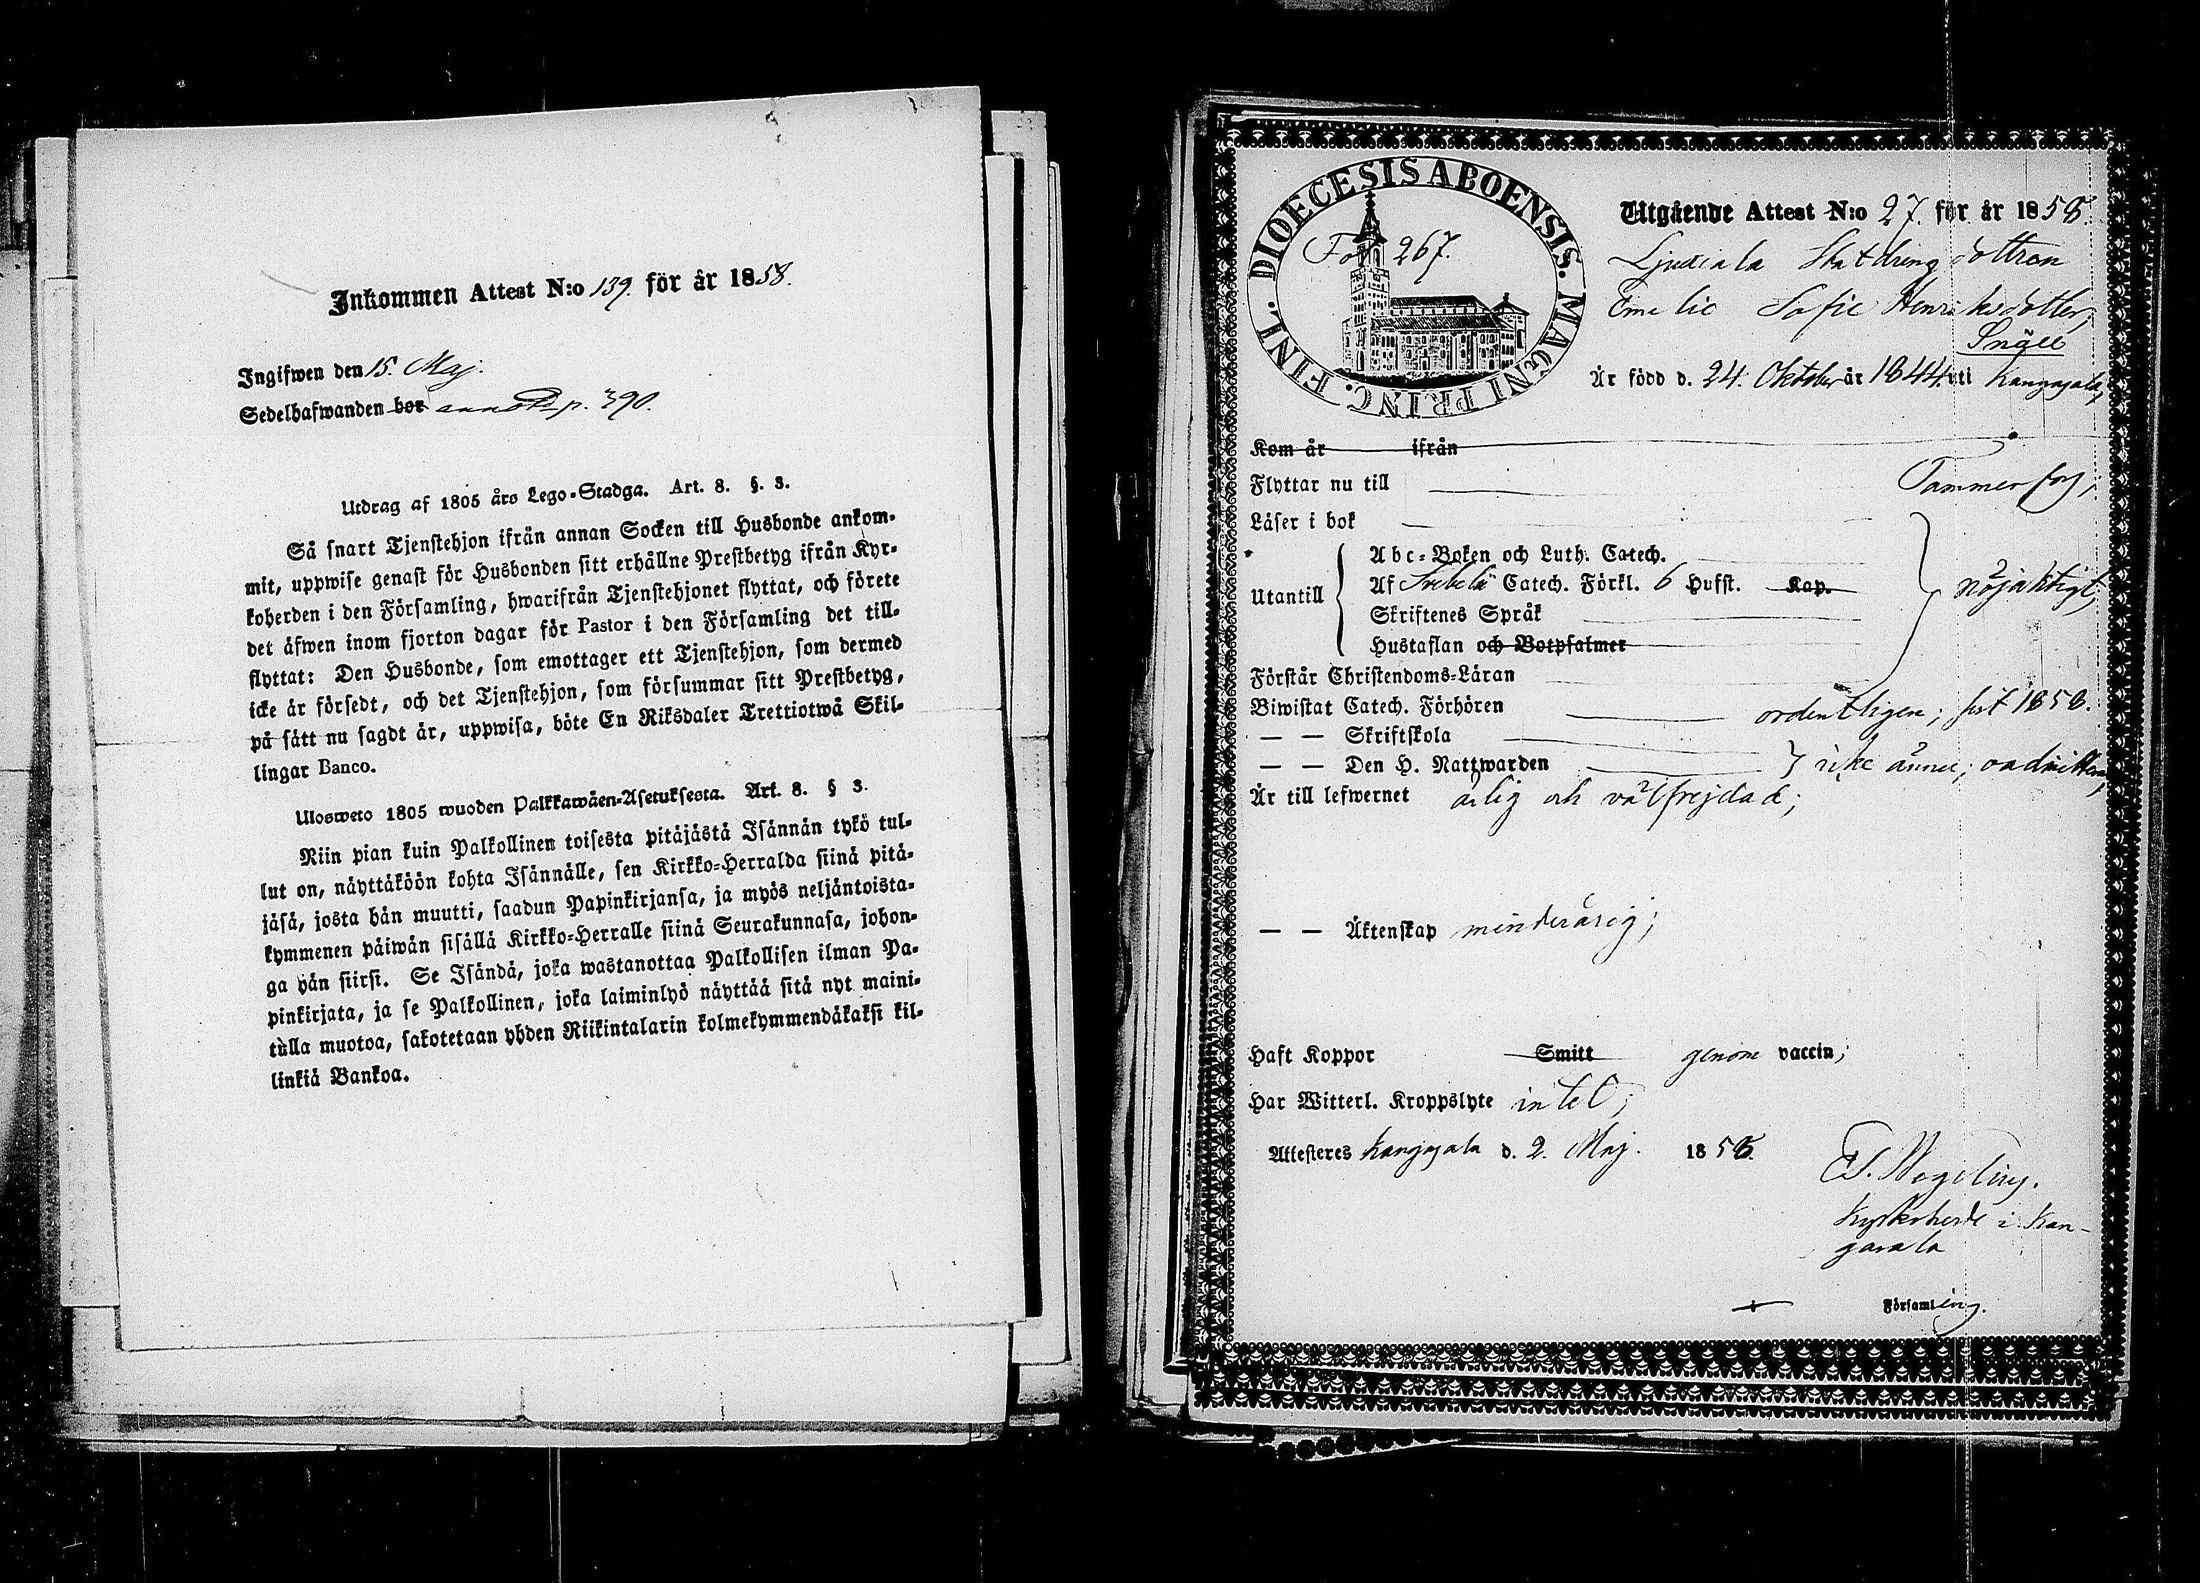 Inkommen Attest N:o 139. för år 1858.
Ingifwen den 15. Maj.
Sedelhafwanden bor p. 390.
Utdrag af 1805 års Lego-Stadga. Art. 8. §. 3.
Så snart Tjenstehjon ifrån annan Socken till Husbonde ankom-
mit, uppwise genast för Husbonden sitt erhållne Prestbetyg ifrån Kyr-
koherden i den Församling, hwarifrån Tjenstehjonet flyttat, och förete
det äfwen inom fjorton dagar för Pastor i den Församling det till-
flyttat: Den Husbonde, som emottager ett Tjenstehjon, som dermed
icke är försedt, och det Tjenstehjon, som försummar sitt Prestbetyg,
på sätt nu sagdt är, uppwisa, böte En Riksdaler Trettiotwå Skil-
lingar Banco.
Ulosweto 1805 wuoden Palkkawäen-Asetuksesta. Art. 8. § 3.
Niin pian kuin Palkollinen toisesta pitäjästä Isännän tykö tul-
lut on, näyttäköön kohta Isännälle, sen Kirkko-Herralda siinä pitä-
jäsä, josta hän muutti, saadun Papinkirjansa, ja myös neljäntoista-
kymmenen päiwän sisällä Kirkko-Herralle siinä Seurakunnasa, johon-
ga hän siirsi. Se Isändä, joka wastanottaa Palkollisen ilman Pa-
pinkirjata, ja se Palkollinen, joka laiminlyö näyttää sitä nyt maini-
tulla muotoa, sakotetaan yhden Riikintalarin kolmekymmendäkaksi kil-
linkiä Bankoa.
DIOECESIS ABOENSIS. MAGNI PRINC. FINL.
Fol 267.
Utgående Attest N:o 27. för år 1858.
Ljudiala dottren
Emelie Sofie Henriksdotter,
Är född d. 24. Oktober år 1844 uti Kangasala,
Kom år ifrån
Flyttar nu till Tammerfors,
Läser i bok
Abc-Boken och Luth. Catech.
Utantill Af Svebelii Catech. Förkl. 6 Hufst. Kap. nöjaktigt,
Skriftenes Språk
Hustaflan och Botpsalmer
Förstår Christendoms-Läran
Biwistat Catech. Förhören ordentligen; sist 1858.
— — Skriftskola
— — Den H. Nattwarden icke ännu; oadmitterad,
Är till lefwernet ärlig och välfrejdad;
— — Äktenskap minderårig;
Haft Koppor Smitt genom vaccin;
Har Witterl. Kroppslyte intet;
Attesteres Kangasala d. 2. Maj. 1858.
Kyrkoherde i Kan-
gasala
Församling.